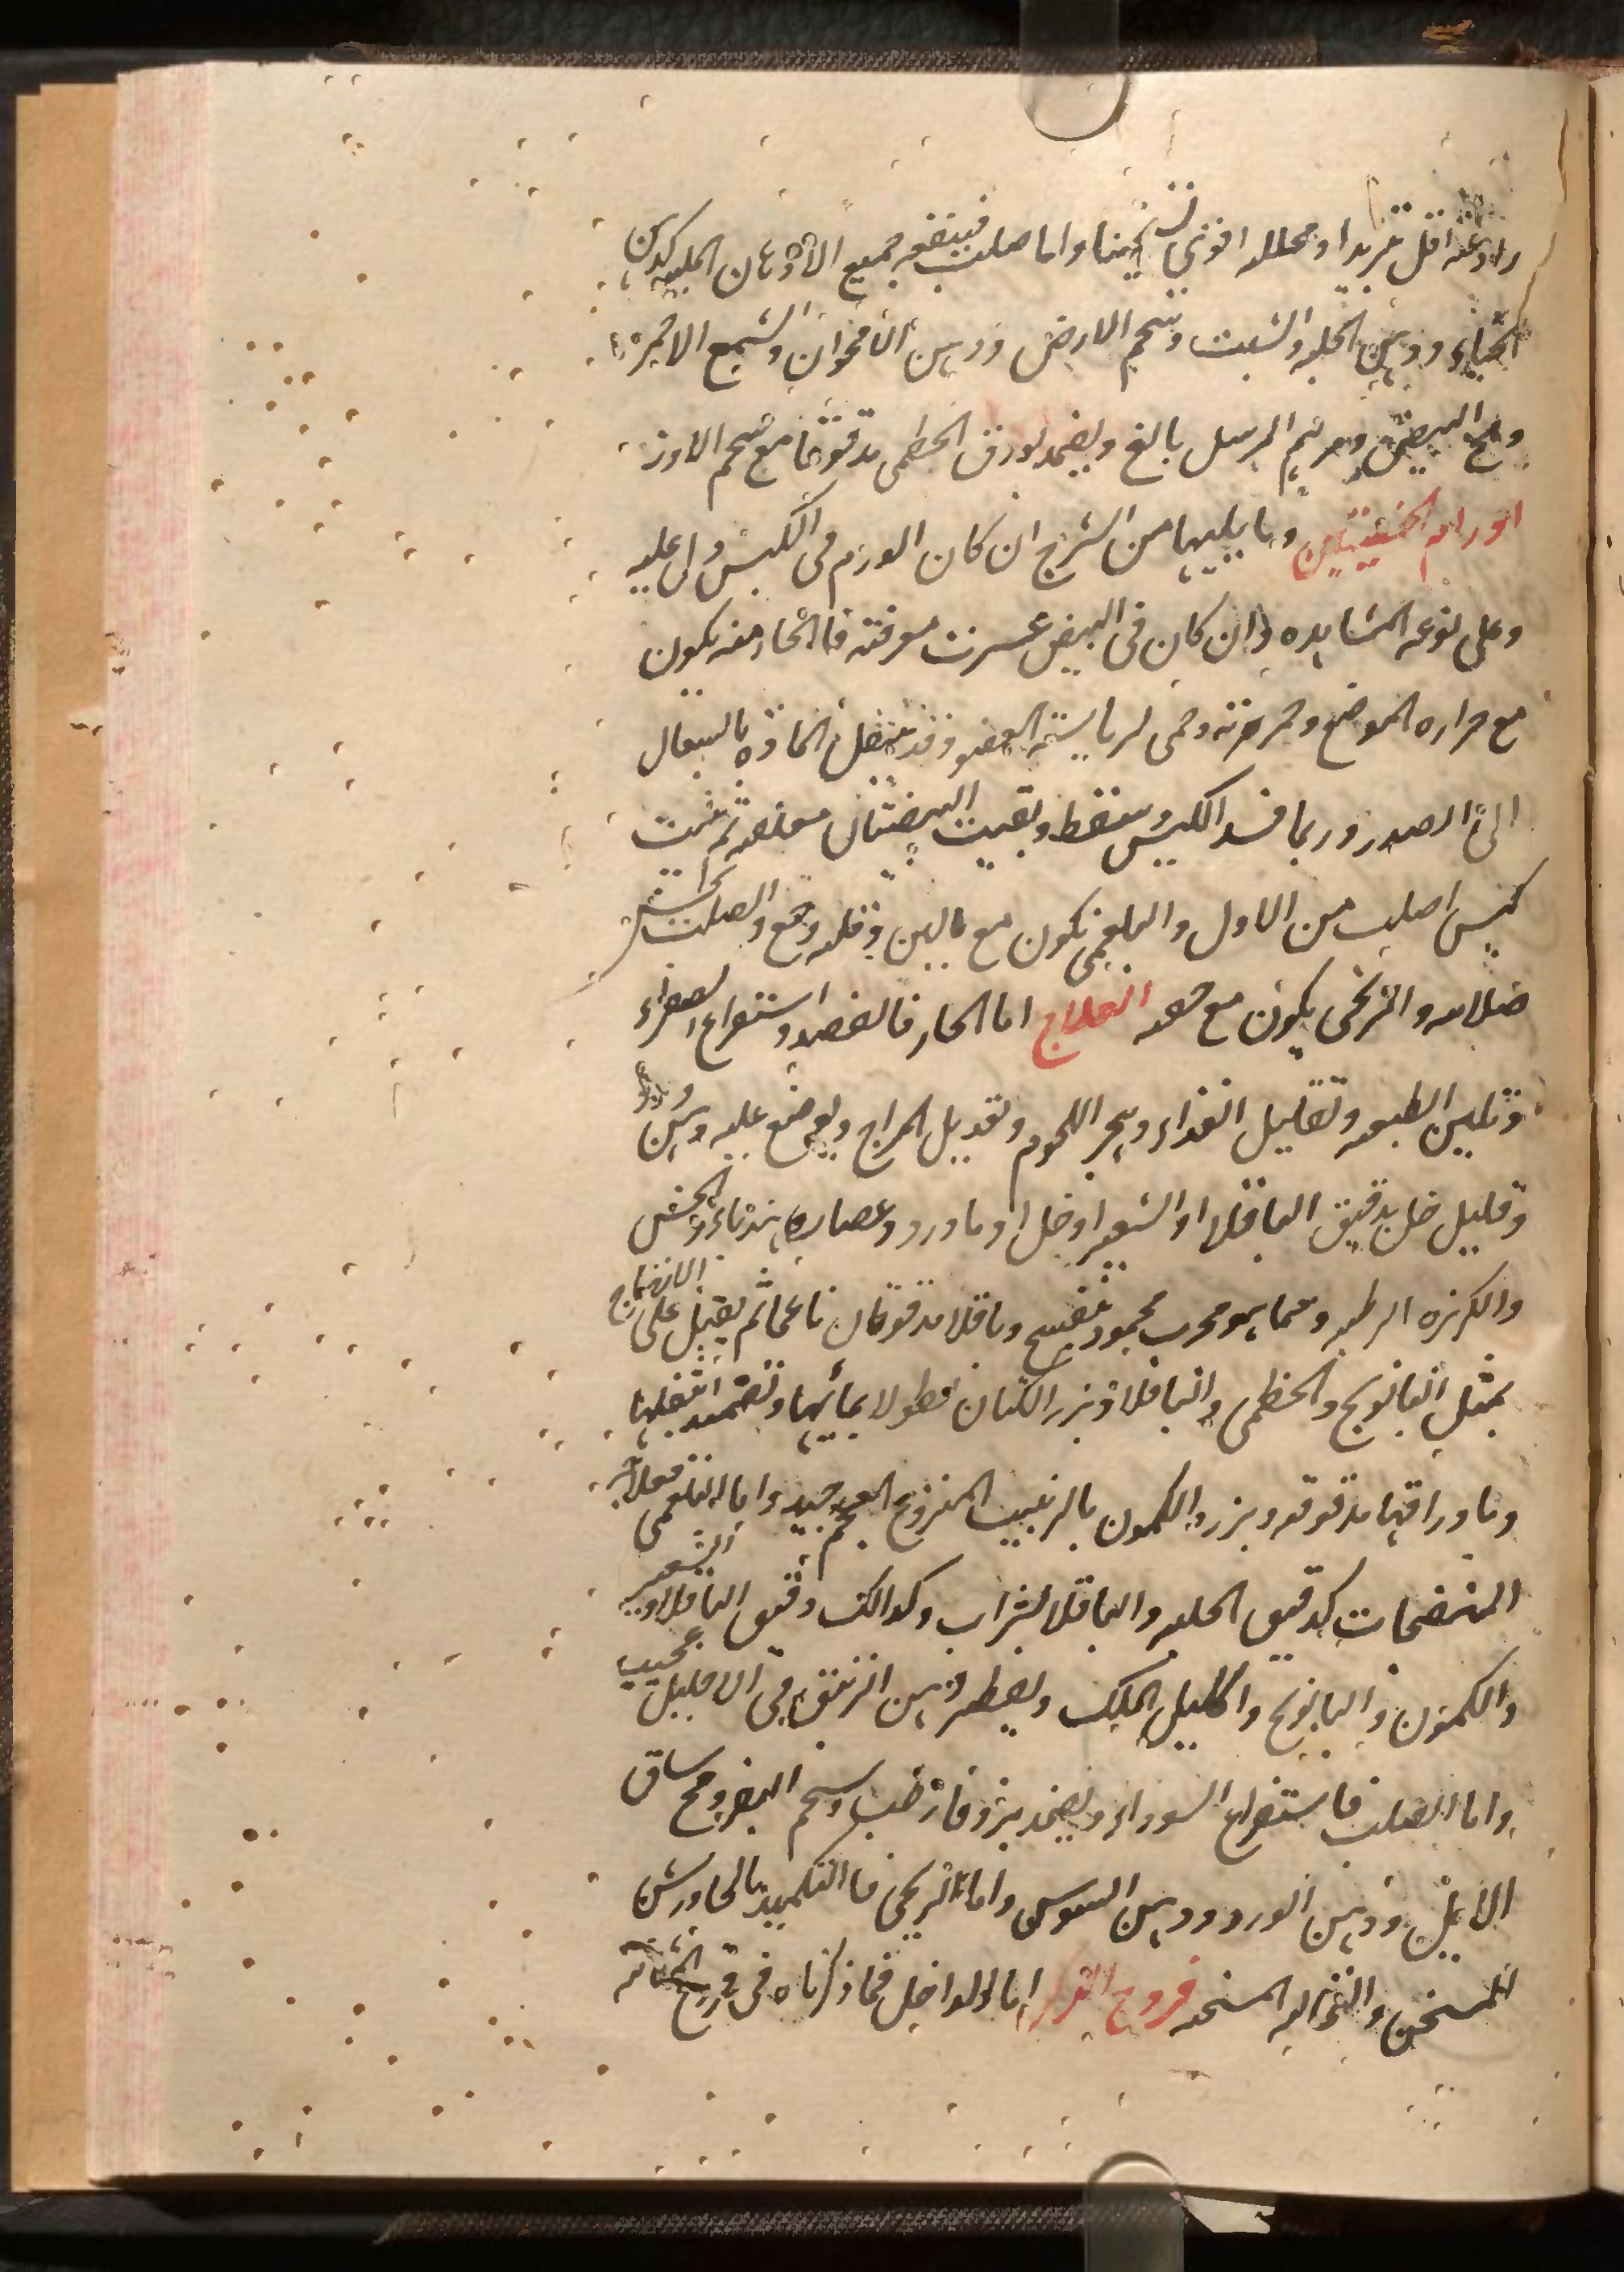 رادعه اقل تبريدا ومحلله اقوى تسخينا واما صلب فينفعه جميع الادهان الملينه كدهن
الحناء ودهن الحلبه والشبت وشحم الارض ودهن الاقحوان والشمع الاحمر
ومح البيض ومرهم الرسل بالغ ويضمد بورق الخطمى مدقوقا مع شحم الاوز
اورام الخصيتين وما يليها من الشرج ان كان الورم فى الكيس دل عليه
وعلى نوعه المشاهده وان كان فى البيض عسرت معرفته فالحار منه يكون
مع حراره الموضع وحمرته وحمى لرياسته العضو وقد تنتقل الماده بالسعال
الى الصدر وربما فسد الكيس وسقط وبقيت البيضتان معلقه ثم نبت
كيس اصلب من الاول والبلغمى يكون مع لين وقله وجع والصلب
صلابه والريحى يكون مع خفه العلاج اما الحار فالفصد واستفراغ الصفراء
وتليين الطبيعه وتقليل الغذاء وهجر اللحوم وتعديل المزاج ويوضع عليه دهن ورد
وقليل خل بدقيق الباقلا او الشعير او خل او ماورد وعصاره هندباء والخس
والكزبره الرطبه ومما هو مجرب محمود بنفسج وباقلا مدقوقان ناعما ثم يقبل على الانضاج
بمثل البابونج والخطمى والباقلا وبزر الكتان نطولا بمائها وتضميد بثفلها
وباوراقها مدقوقه وبزر الكمون بالزبيب المنزوع العجم جيد واما البلغمى فعلاجه
المنضجات كدقيق الحلبه والباقلا بشراب وكذالك دقيق الباقلا والشعير
والكمون والبابونج واكليل الملك ويقطر دهن الزنبق فى الاحليل عجيب
واما الصلب فاستفراغ السوداء ويضمد بزوفا رطب وشحم البقر ومح ساق
الايل ودهن الورد ودهن السوسن واما الريحى فالتكميد بالجاورس
المسخن والنخاله المسخنه قروح اما الداخل فما ذكرناه فى قروح المثانه